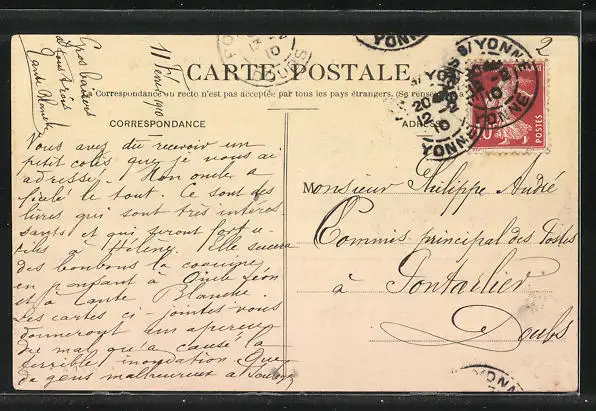 2
CARTE POSTALE
Correspondance au recto n'est pas acceptée par tous les pays étrangers. (Se renseigner
CORRESPONDANCE
ADRESSE
S/YONNE
YONNE
20
12 -2
10
YONNE
POSTES
10
11 Fév 1910
Gros baisers
à tous trois
Tante Blanche
Vous avez du recevoir un
petit colis que je vous ai
adressé. Mon oncle a
ficelé le tout. Ce sont des
livres qui sont très intéres
sants et qui seront fort u-
tiles à Hélène. Elle sucera
des bonbons la coquine
en pensant à Oncle Léon
et à Tante Blanche.
Les cartes ci-jointes vous
donneront un aperçu
du mal qu'a causé la
terrible inondation. Que
de gens malheureux à
Monsieur Philippe André
Commis principal des Postes
à Pontarlier
Doubs